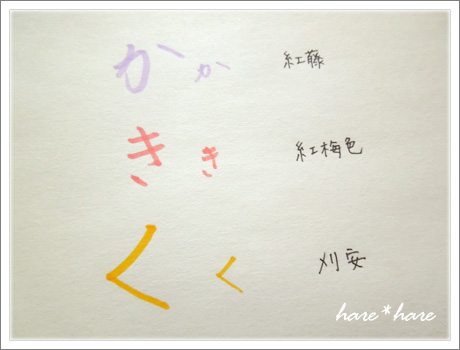 か か 紅藤
き き 紅梅色
く く 刈安
hare*hare